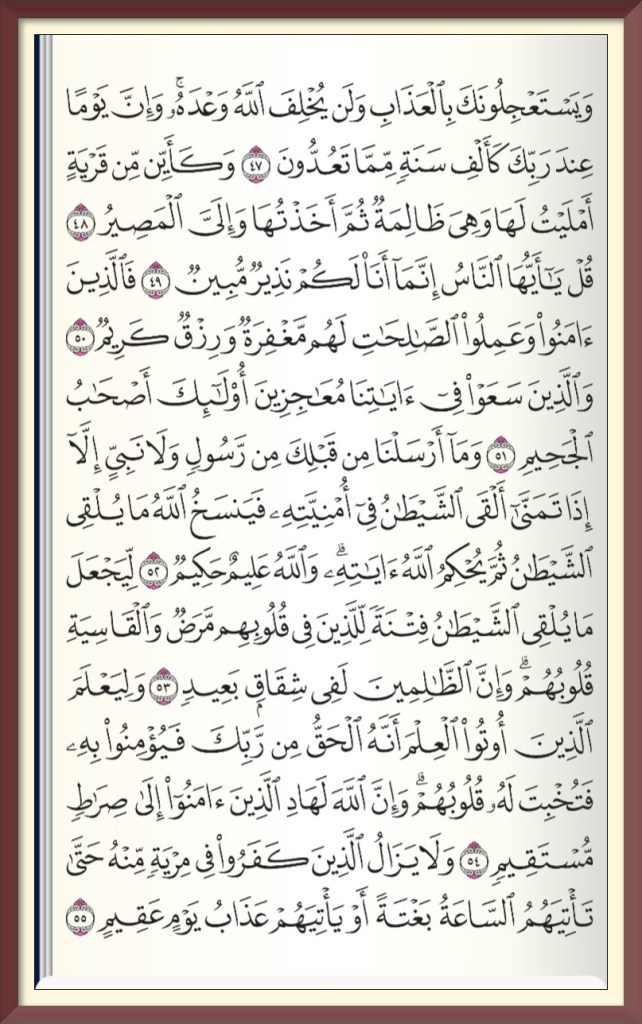 وَيَسْتَعْجِلُونَكَ بِٱلْعَذَابِ وَلَن يُخْلِفَ ٱللَّهُ وَعْدَهُۥۚ وَإِنَّ يَوْمًا
عِندَ رَبِّكَ كَأَلْفِ سَنَةٍ مِّمَّا تَعُدُّونَ ٤٧ وَكَأَيِّن مِّن قَرْيَةٍ
أَمْلَيْتُ لَهَا وَهِىَ ظَالِمَةٌ ثُمَّ أَخَذْتُهَا وَإِلَىَّ ٱلْمَصِيرُ ٤٨
قُلْ يَٰٓأَيُّهَا ٱلنَّاسُ إِنَّمَآ أَنَا۠ لَكُمْ نَذِيرٌ مُّبِينٌ ٤٩ فَٱلَّذِينَ
ءَامَنُوا۟ وَعَمِلُوا۟ ٱلصَّٰلِحَٰتِ لَهُم مَّغْفِرَةٌ وَرِزْقٌ كَرِيمٌ ٥٠
وَٱلَّذِينَ سَعَوْا۟ فِىٓ ءَايَٰتِنَا مُعَٰجِزِينَ أُو۟لَٰٓئِكَ أَصْحَٰبُ
ٱلْجَحِيمِ ٥١ وَمَآ أَرْسَلْنَا مِن قَبْلِكَ مِن رَّسُولٍ وَلَا نَبِىٍّ إِلَّآ
إِذَا تَمَنَّىٰٓ أَلْقَى ٱلشَّيْطَٰنُ فِىٓ أُمْنِيَّتِهِۦ فَيَنسَخُ ٱللَّهُ مَا يُلْقِى
ٱلشَّيْطَٰنُ ثُمَّ يُحْكِمُ ٱللَّهُ ءَايَٰتِهِۦۗ وَٱللَّهُ عَلِيمٌ حَكِيمٌ ٥٢ لِّيَجْعَلَ
مَا يُلْقِى ٱلشَّيْطَٰنُ فِتْنَةً لِّلَّذِينَ فِى قُلُوبِهِم مَّرَضٌ وَٱلْقَاسِيَةِ
قُلُوبُهُمْۗ وَإِنَّ ٱلظَّٰلِمِينَ لَفِى شِقَاقٍۭ بَعِيدٍ ٥٣ وَلِيَعْلَمَ
ٱلَّذِينَ أُوتُوا۟ ٱلْعِلْمَ أَنَّهُ ٱلْحَقُّ مِن رَّبِّكَ فَيُؤْمِنُوا۟ بِهِۦ
فَتُخْبِتَ لَهُۥ قُلُوبُهُمْۗ وَإِنَّ ٱللَّهَ لَهَادِ ٱلَّذِينَ ءَامَنُوٓا۟ إِلَىٰ صِرَٰطٍ
مُّسْتَقِيمٍ ٥٤ وَلَا يَزَالُ ٱلَّذِينَ كَفَرُوا۟ فِى مِرْيَةٍ مِّنْهُ حَتَّىٰ
تَأْتِيَهُمُ ٱلسَّاعَةُ بَغْتَةً أَوْ يَأْتِيَهُمْ عَذَابُ يَوْمٍ عَقِيمٍ ٥٥